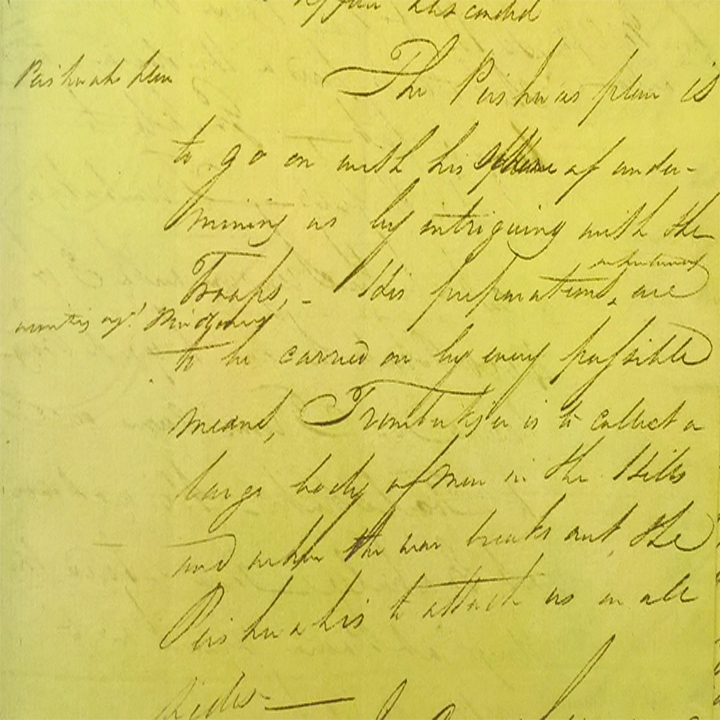 has ended
Peishwahs plan
The Peishwas plan is
to go on with his of under-
mining us by intriguing with the
Troops, - His preparations are
to be carried on by every possible
means, Trimbukjee is to collect a
large body of Men in the Hills
and when the war breaks out, the
Peishwa his to attack us on all
sides